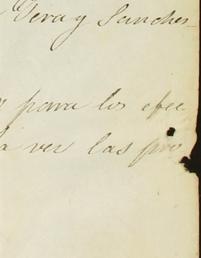 Tera y Sanches
para los efec
a ver las pro